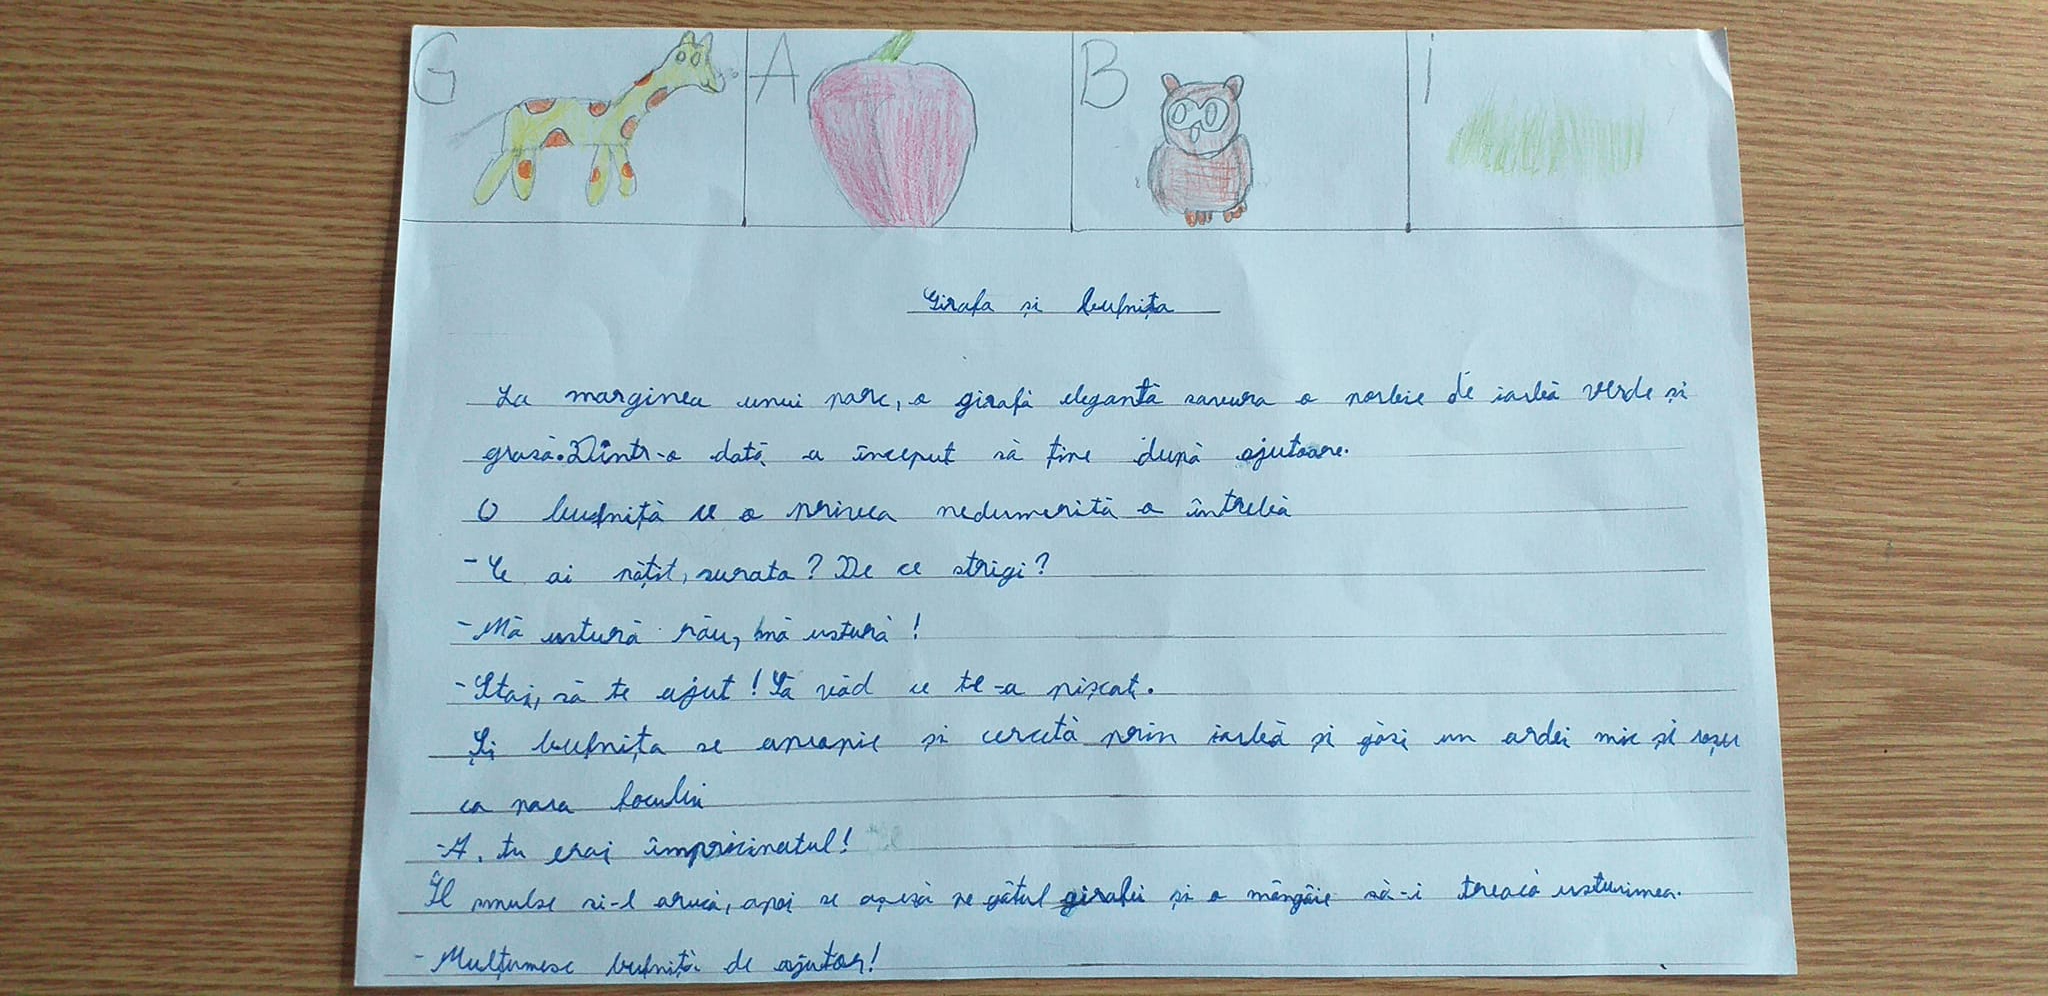 G A B I
Girafa și bufnița
La marginea unui parc, o girafă elegantă savura o porție de iarbă verde și
grasă. Dintr-o dată a început să țipe după ajutoare.
O bufniță ce o privea nedumerită o întrebă
- Ce ai pățit, surata? De ce strigi?
- Mă ustură rău, mă ustură!
- Stai, să te ajut! Să văd ce te-a pișcat.
Și bufnița se apropie și cercetă prin iarbă și găsi un ardei mic și roșu
ca para focului
- A, tu erai împricinatul!
Îl smulse si-l aruncă, apoi se așeză pe gâtul girafei și o mângâie să-i treacă usturimea.
- Mulțumesc bufniță de ajutor!